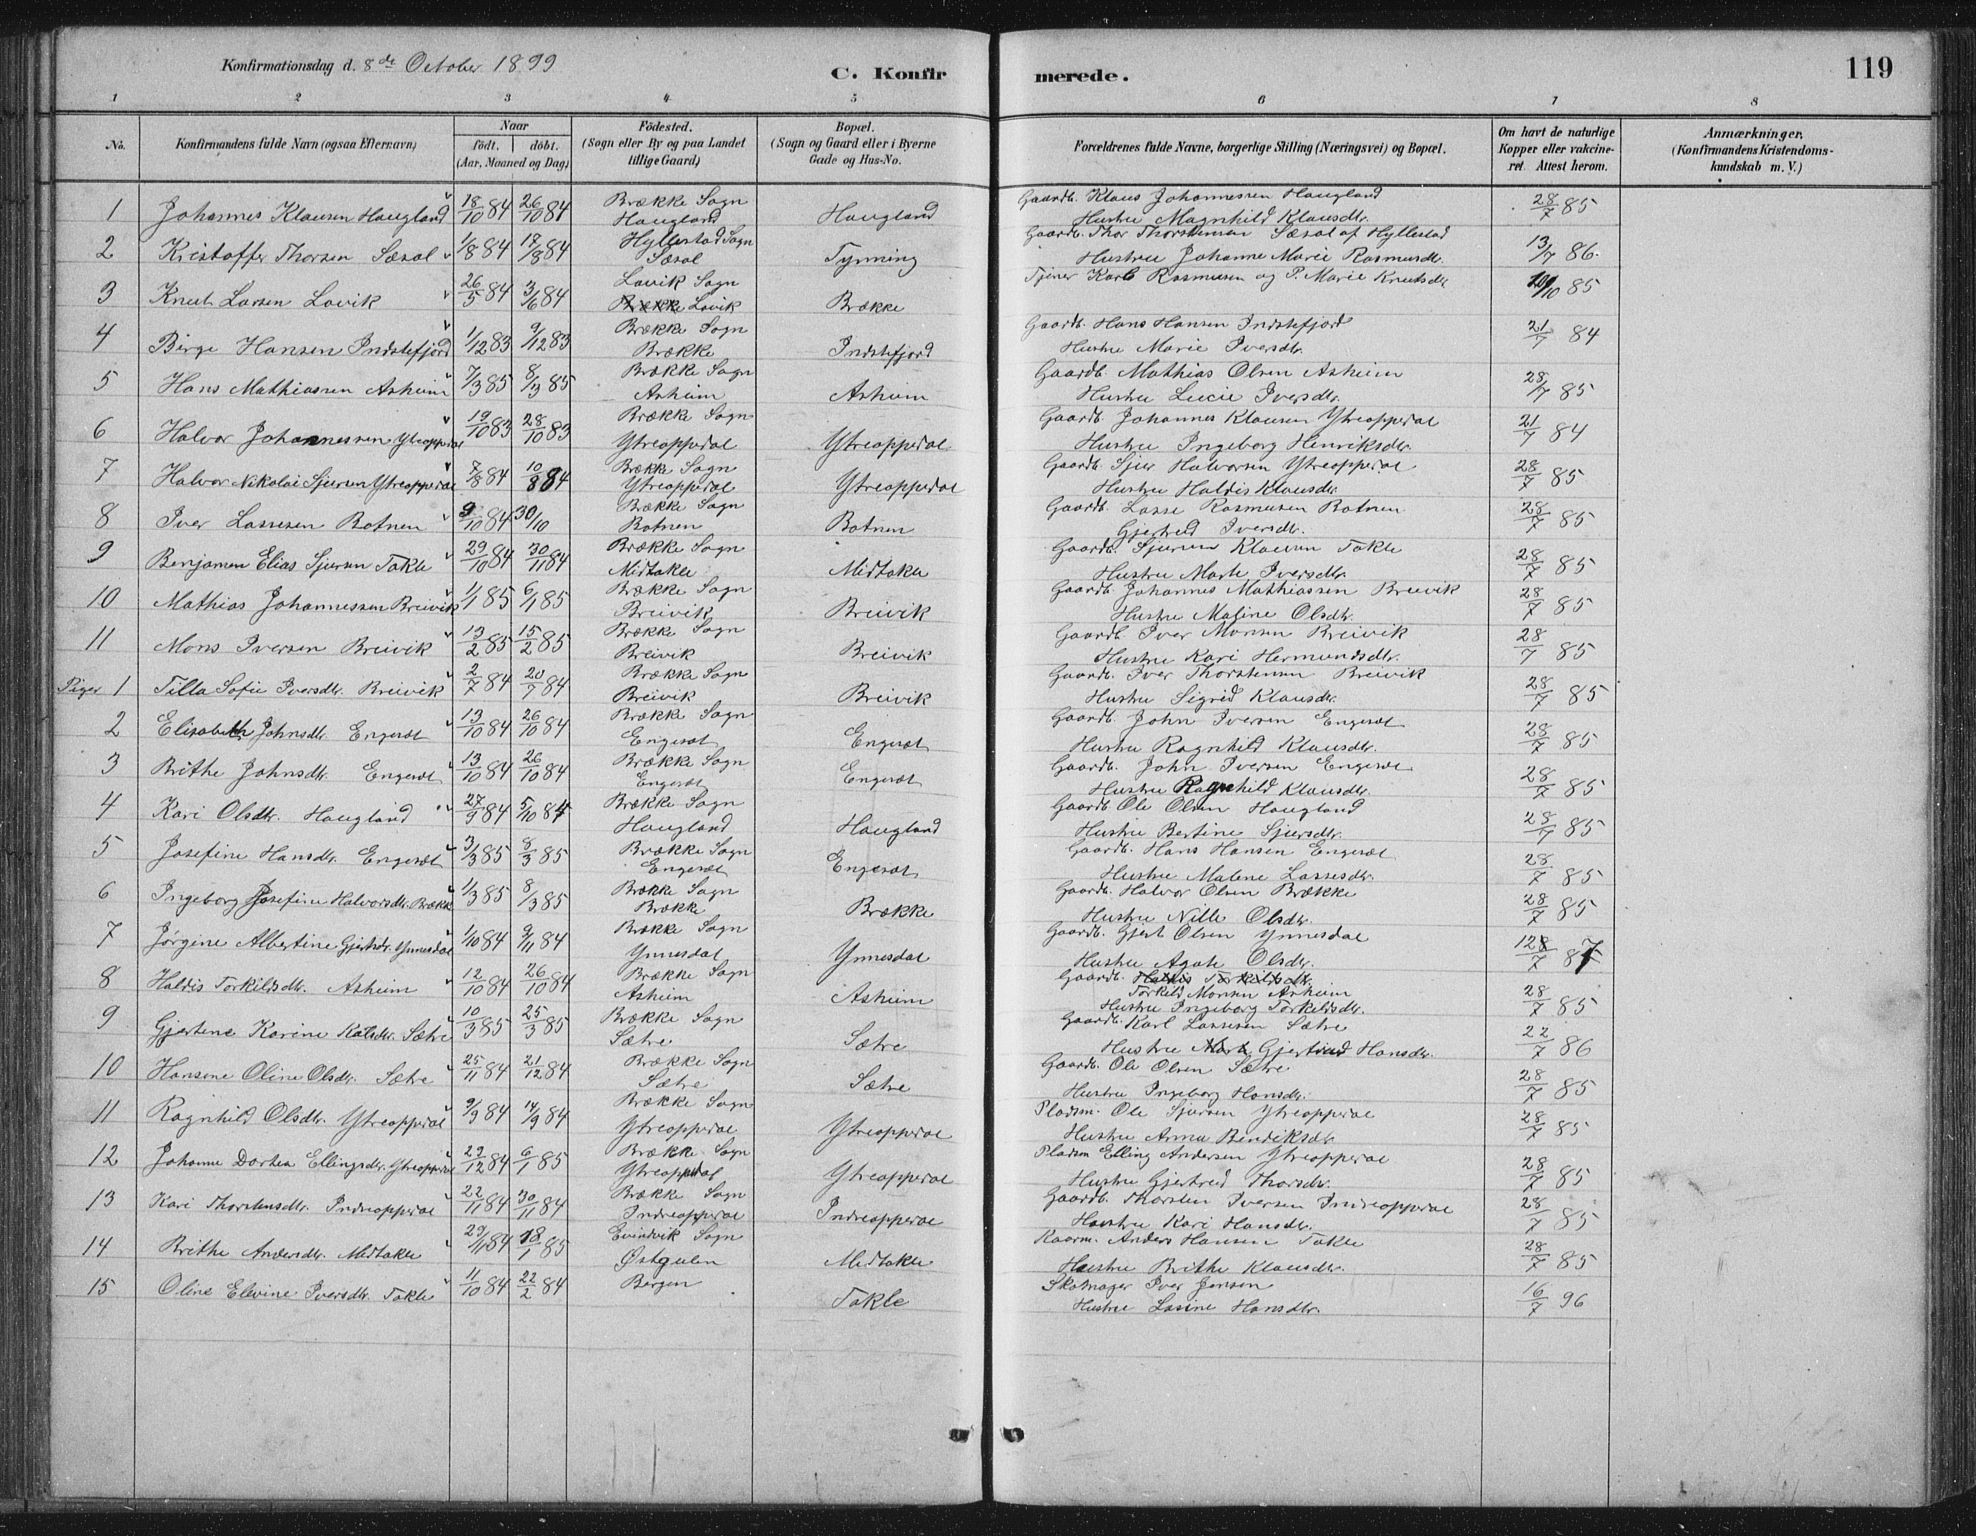 Konfirmationsdag d. 8de October 1899
C. Konfirmerede.
119
1 2 3 4 5 6 7 8
No. Konfirmandens fulde Navn (ogsaa Efternavn) Naar født. døbt. (Aar, Maaned og Dag) Fødested. (Sogn eller By og paa Landet tillige Gaard) Bopæl. (Sogn og Gaard eller i Byerne Gade og Hus-No. Forældrenes fulde Navne, borgerlige Stilling (Næringsvei) og Bopæl. Om havt de naturlige Kopper eller vakcineret. Attest herom. Anmærkninger. (Konfirmandens Kristendomskundskab m. V.)
1 Johannes Klausen Haugland 18/10 84 26/10 84 Brække Sogn Haugland Haugland Gaardb. Klaus Johannessen Haugland Hustru Magnhild Klausdtr. 28/7 85
2 Kristoffer Thorsen Sæsol 1/8 84 17/8 84 Hyllestad Sogn Sæsol Tynning Gaardb. Thor Thorstensen Sæsol af Hyllestad Hustru Johanne Marie Rasmusdtr. 13/7 86
3 Knut Larsen Lavik 26/5 84 3/6 84 Lavik Sogn Lavik Brække Tjener Karl Rasmusen og P. Marie Knutsdtr /10 85
4 Birge Hansen Indstefjord 1/12 83 9/12 83 Brække Sogn Brække Indstefjord Gaardb. Hans Hansen Indstefjord Hustru Marie Iversdtr. 21/7 84
5 Hans Mathiassen Asheim 7/3 85 8/3 85 Brække Sogn Asheim Asheim Gaardb. Mathias Olsen Asheim Hustru Lucie Iversdtr. 28/7 85
6 Halvor Johannessen Ytreoppedal 19/10 83 28/10 83 Brække Sogn Ytreoppedal Ytreoppedal Gaardb. Johannes Klausen Ytreoppedal Hustru Ingeborg Henriksdtr. 21/7 84
7 Halvor Nikolai Sjursen Ytreoppedal 7/8 84 10/8 84 Brække Sogn Ytreoppedal Ytreoppedal Gaardb. Sjur Halvorsen Ytreoppedal Hustru Haldis Klausdtr. 28/7 85
8 Iver Lassesen Botnen 9/10 84 30/10 Brække Sogn Botnen Botnen Gaardb. Lasse Rasmusen Botnen Gjertrud Iversdtr. 28/7 85
9 Benjamen Elias Sjursen Takle 29/10 84 30/11 84 Brække Sogn Midtakle Midtakle Gaardb. Sjursen Klausen Takle Hustru Marte Iversdtr. 28/7 85
10 Mathias Johannessen Breivik 1/1 85 6/1 85 Brække Sogn Breivik Breivik Gaardb. Johannes Mathiassen Breivik Hustru Maline Olsdtr. 28/7 85
11 Mons Iversen Breivik 13/2 85 15/2 85 Brække Sogn Breivik Breivik Gaardb. Iver Monsen Breivik Hustru Kari Hermundsdtr. 28/7 85
Piger 1 Tilla Sofie Iversdtr. Breivik 2/7 84 20/7 84 Brække Sogn Breivik Breivik Gaardb. Iver Thorstensen Breivik Hustru Sigrid Klausdtr. 28/7 85
2 Elisabeth Johnsdtr Engesæt 13/10 84 26/10 84 Brække Sogn Engesæt Engesæt Gaardb. John Iversen Engesæt Hustru Ragnhild Klausdtr. 28/7 85
3 Brithe Johnsdtr. Engesæt 13/10 84 26/10 84 Brække Sogn Engesæt Engesæt Gaardb. John Iversen Engesæt Hustru Ragnhild Klausdtr. 28/7 85
4 Kari Olsdtr. Haugland 27/9 84 5/10 84 Brække Sogn Haugland Haugland Gaardb. Ole Olsen Haugland Hustru Bertine Sjursdtr. 28/7 85
5 Josefine Hansdtr. Engesæt 3/3 85 8/3 85 Brække Sogn Engesæt Engesæt Gaardb. Hans Hansen Engesæt Hustru Malene Lassesdtr. 28/7 85
6 Ingeborg Josefine Halvorsdtr. Brække 1/3 85 8/3 85 Brække Sogn Brække Brække Gaardb. Halvor Olsen Brække Hustru Nille Olsdtr. 28/7 85
7 Jørgine Albertine Gjertsdtr. Ynnesdal 1/10 84 9/11 84 Brække Sogn Ynnesdal Ynnesdal Gaardb. Gjert Olsen Ynnesdal Hustru Agate Olsdtr.
8 Haldis Torkildsdtr. Asheim 12/10 84 26/10 84 Brække Sogn Asheim Asheim Gaardb. Haldis Torkildsdtr. Torkild Monsen Asheim Hustru Ingeborg Torkildsdtr. 28/7 85
9 Gjertine Karine Kalsdtr. Sætre 10/3 85 25/3 85 Brække Sogn Sætre Sætre Gaardb. Karl Lassesen Sætre Hustru Gjertrud Hansdtr. 22/7 86
10 Hansene Oline Olsdtr. Sætre 25/11 84 21/12 84 Brække Sogn Sætre Sætre Gaardb. Ole Olsen Sætre Hustru Ingeborg Hansdtr. 28/7 85
11 Ragnhild Olsdtr. Ytreoppedal 9/9 84 14/9 84 Brække Sogn Ytreoppedal Ytreoppedal Pladsm. Ole Sjursen Ytreoppedal Hustru Anna Bendiksdtr. 28/7 85
12 Johanne Dortea Ellingsdtr. Ytreoppedal 29/12 84 6/1 85 Brække Sogn Ytreoppedal Ytreoppedal Pladsm Elling Andersen Ytreoppedal Hustru Gjertrud Thorsdtr. 28/7 85
13 Kari Thorstensdtr. Indreoppedal 22/11 84 30/11 84 Brække Sogn Indreoppedal Indreoppedal Gaardb. Thorsten Iversen Indreoppedal Hustru Kari Hansdtr. 28/7 85
14 Brithe Andersdtr. Midtakle 29/11 84 18/1 85 Evindvik Sogn Østgulen Midtakle Kaarm. Anders Hansen Takle Hustru Brithe Klausdtr. 28/7 85
15 Oline Elvine Iversdtr. Takle 11/10 84 22/2 84 Bergen Takle Skomager Iver Jensen Hustru Lasine Hansdtr. 16/7 96